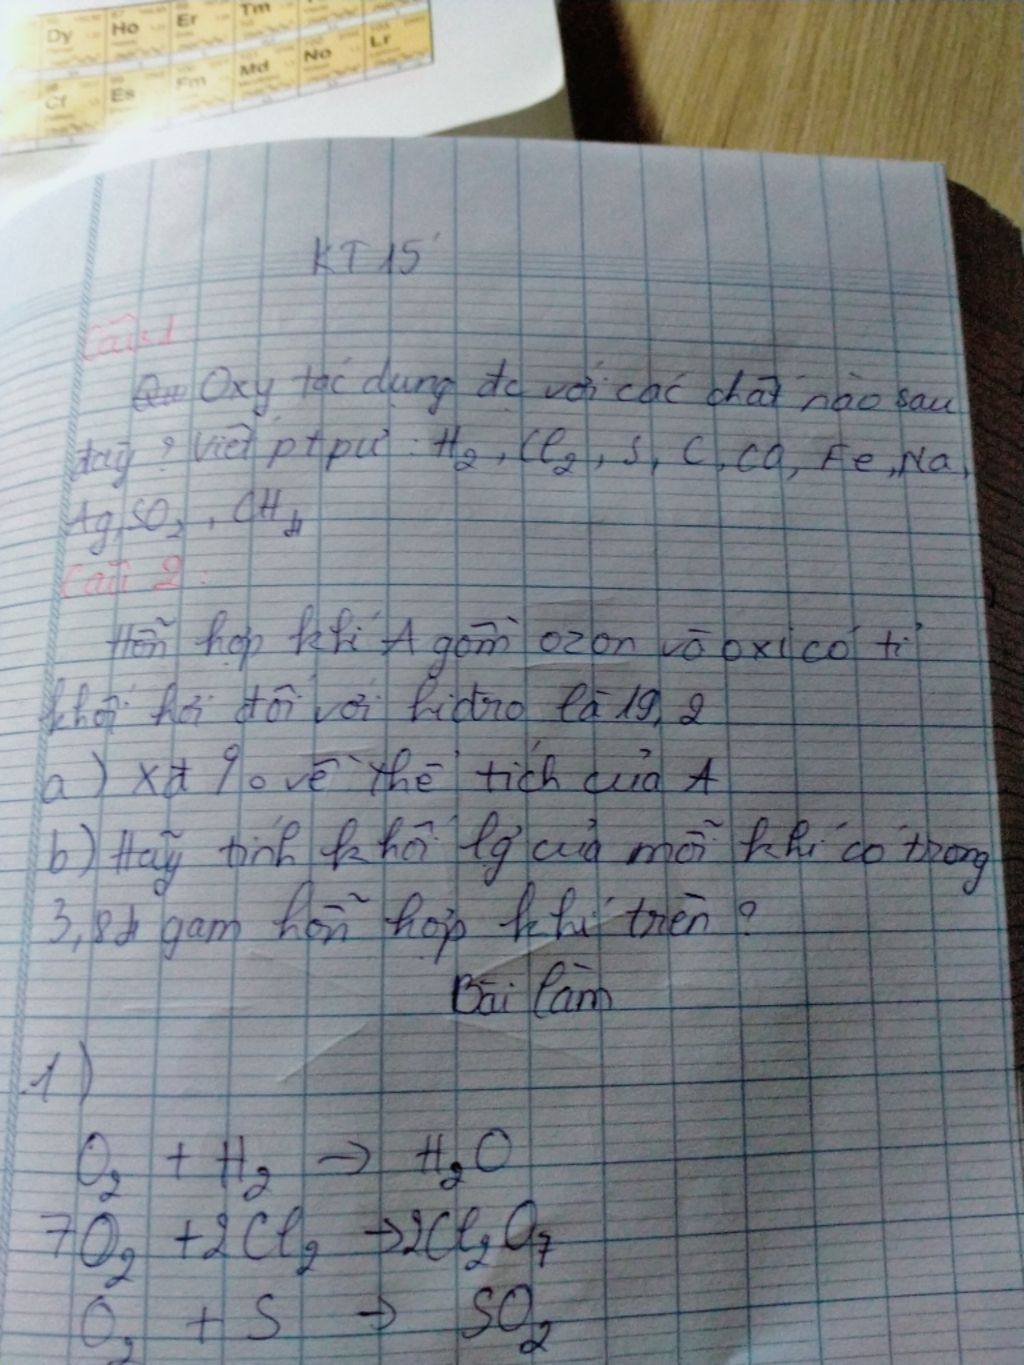 Dy Ho Er Tm
Cf Es Fm Md No Lr
KT 15'
Câu 1
Oxy tác dụng đc với các chất nào sau
đây? Viết ptpư: H2, Cl2, S, C, CO, Fe, Na,
Ag, SO2, CH4
Câu 2:
Hỗn hợp khí A gồm ozon và oxi có tỉ
khối hơi đối với hiđro là 19,2
a) Xđ % về thể tích của A
b) Hãy tính khối lg của mỗi khí có trong
3,84 gam hỗn hợp khí trên?
Bài làm
1)
O2 + H2 → H2O
7O2 + 2Cl2 → 2Cl2O7
O2 + S → SO2